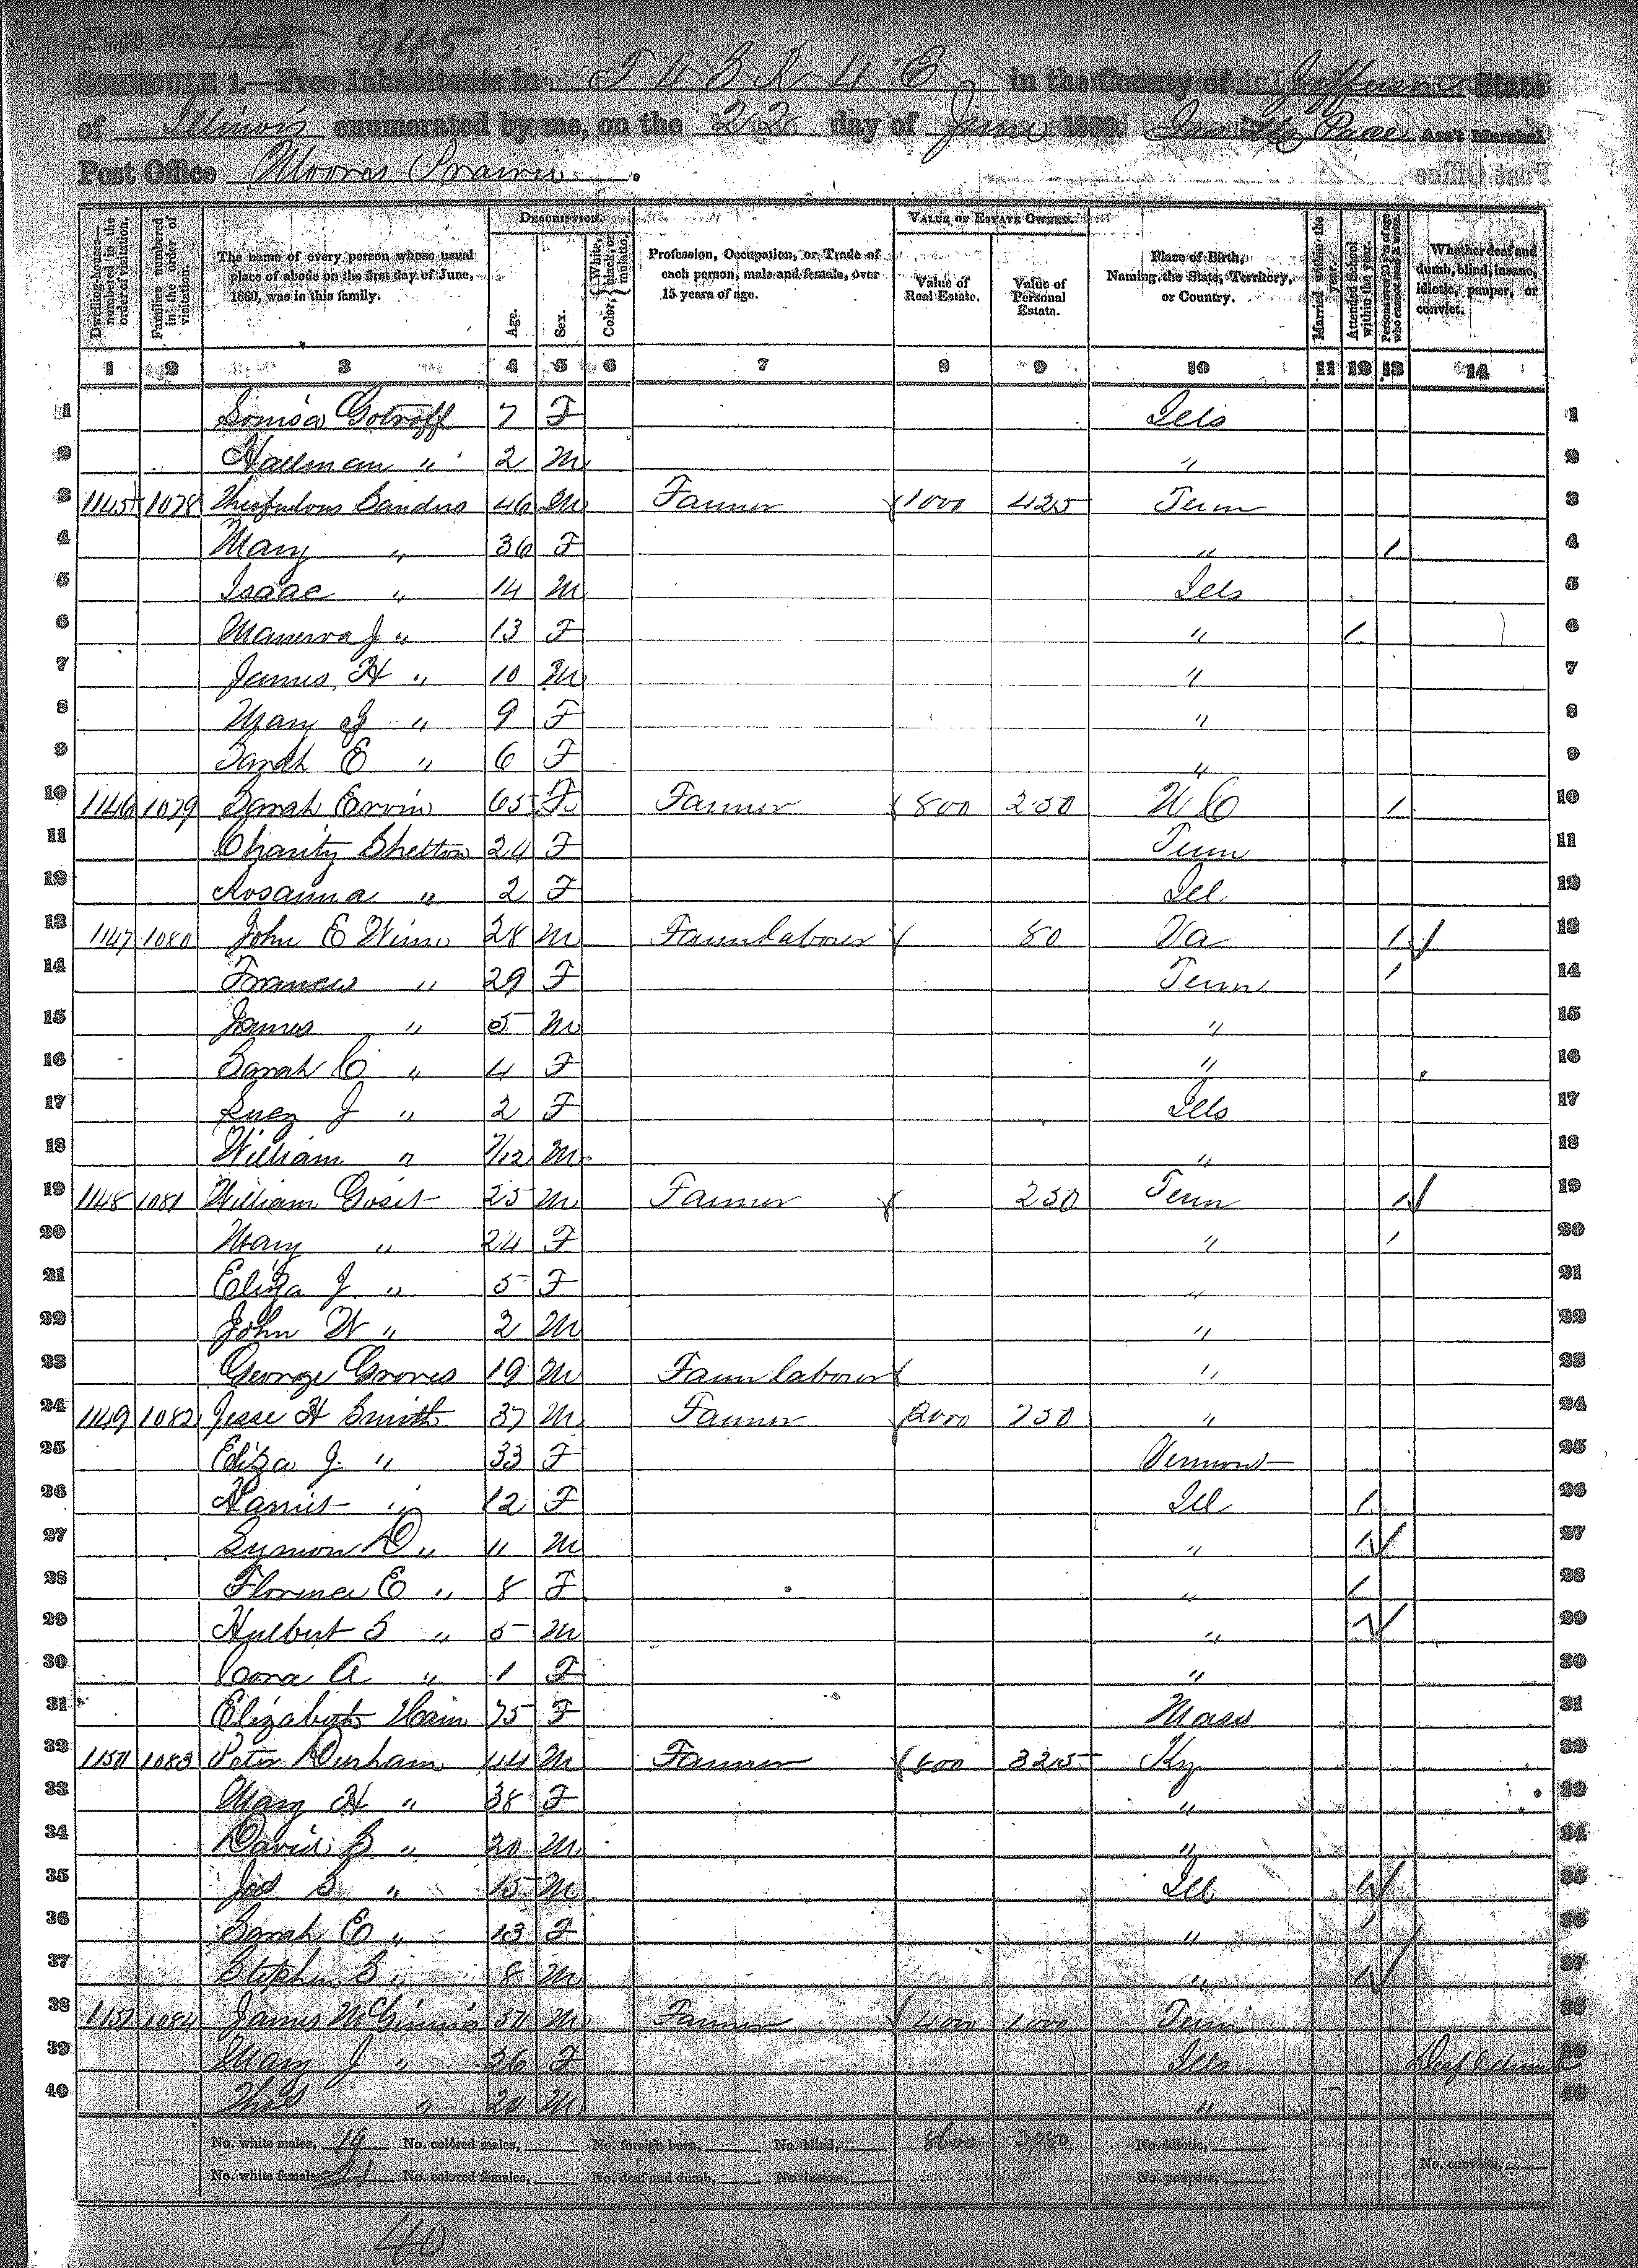 Page No. 945
SCHEDULE 1.—Free Inhabitants in T 4 S R 4 E in the County of Jefferson State
of Illinois enumerated by me, on the 22 day of June 1860. Pace Ass't Marshal
Post Office Moores Prairie
Dwelling-house—numbered in the order of visitation.
Families numbered in the order of visitation.
The name of every person whose usual place of abode on the first day of June, 1860, was in this family.
DESCRIPTION.
Age.
Sex.
Color, { White, black, or mulatto.
Profession, Occupation, or Trade of each person, male and female, over 15 years of age.
VALUE OF ESTATE OWNED.
Value of Real Estate.
Value of Personal Estate.
Place of Birth, Naming the State, Territory, or Country.
Married within the year.
Attended School within the year.
Persons over 20 y'rs of age who cannot read & write.
Whether deaf and dumb, blind, insane, idiotic, pauper, or convict.
1 2 3 4 5 6 7 8 9 10 11 12 13 14
1 Louisa Gotroff 7 F Ills 1
2 Hallman " 2 M " 2
3 1145 1078 Sanders 46 M Farmer 1000 425 Tenn 3
4 Mary " 36 F " / 4
5 Isaac " 14 M Ills 5
6 Manerva J " 13 F " / 6
7 James H " 10 M " 7
8 Mary J " 9 F " 8
9 Sarah E " 6 F " 9
10 1146 1079 Sarah Ervin 65 F Farmer 800 250 N C / 10
11 Charity Shelton 24 F Tenn 11
12 Rosanna " 2 F Ill 12
13 1147 1080 John E 28 M Farm labourer 80 Va / 13
14 Frances " 29 F Tenn / 14
15 James " 5 M " 15
16 Sarah C " 4 F " 16
17 Lucy J " 2 F Ills 17
18 William " 7/12 M " 18
19 1148 1081 William Gosit 25 M Farmer 250 Tenn / 19
20 Mary " 24 F " / 20
21 Eliza J. " 5 F " 21
22 John W " 2 M " 22
23 George Groves 19 M Farm labourer " 23
24 1149 1082 Jesse H Smith 37 M Farmer 2000 750 " 24
25 Eliza J. " 33 F Vermont 25
26 Harriet " 12 F Ill / 26
27 Lymon D " 11 M " / 27
28 Florence E " 8 F " / 28
29 Hulbert S " 5 M " / 29
30 Cora A " 1 F " 30
31 Elizabeth 75 F Mass 31
32 1150 1083 Peter Durham 44 M Farmer 800 325 Ky 32
33 Mary H " 38 F " 33
34 David S " 20 M " 34
35 S " 15 M Ill / 35
36 Sarah E " 13 F " / 36
37 Stephen S " 8 M " / 37
38 1151 1084 James McGinnis 50 M Farmer 4000 1000 Tenn 38
39 Mary J " 26 F Ills Deaf & dumb 39
40 Thos " 20 M " 40
No. white males, 19 No. colored males, No. foreign born, No. blind, 8600 3,080 No. idiotic,
No. white females, 21 No. colored females, No. deaf and dumb, No. insane, No. paupers, No. convicts,
40